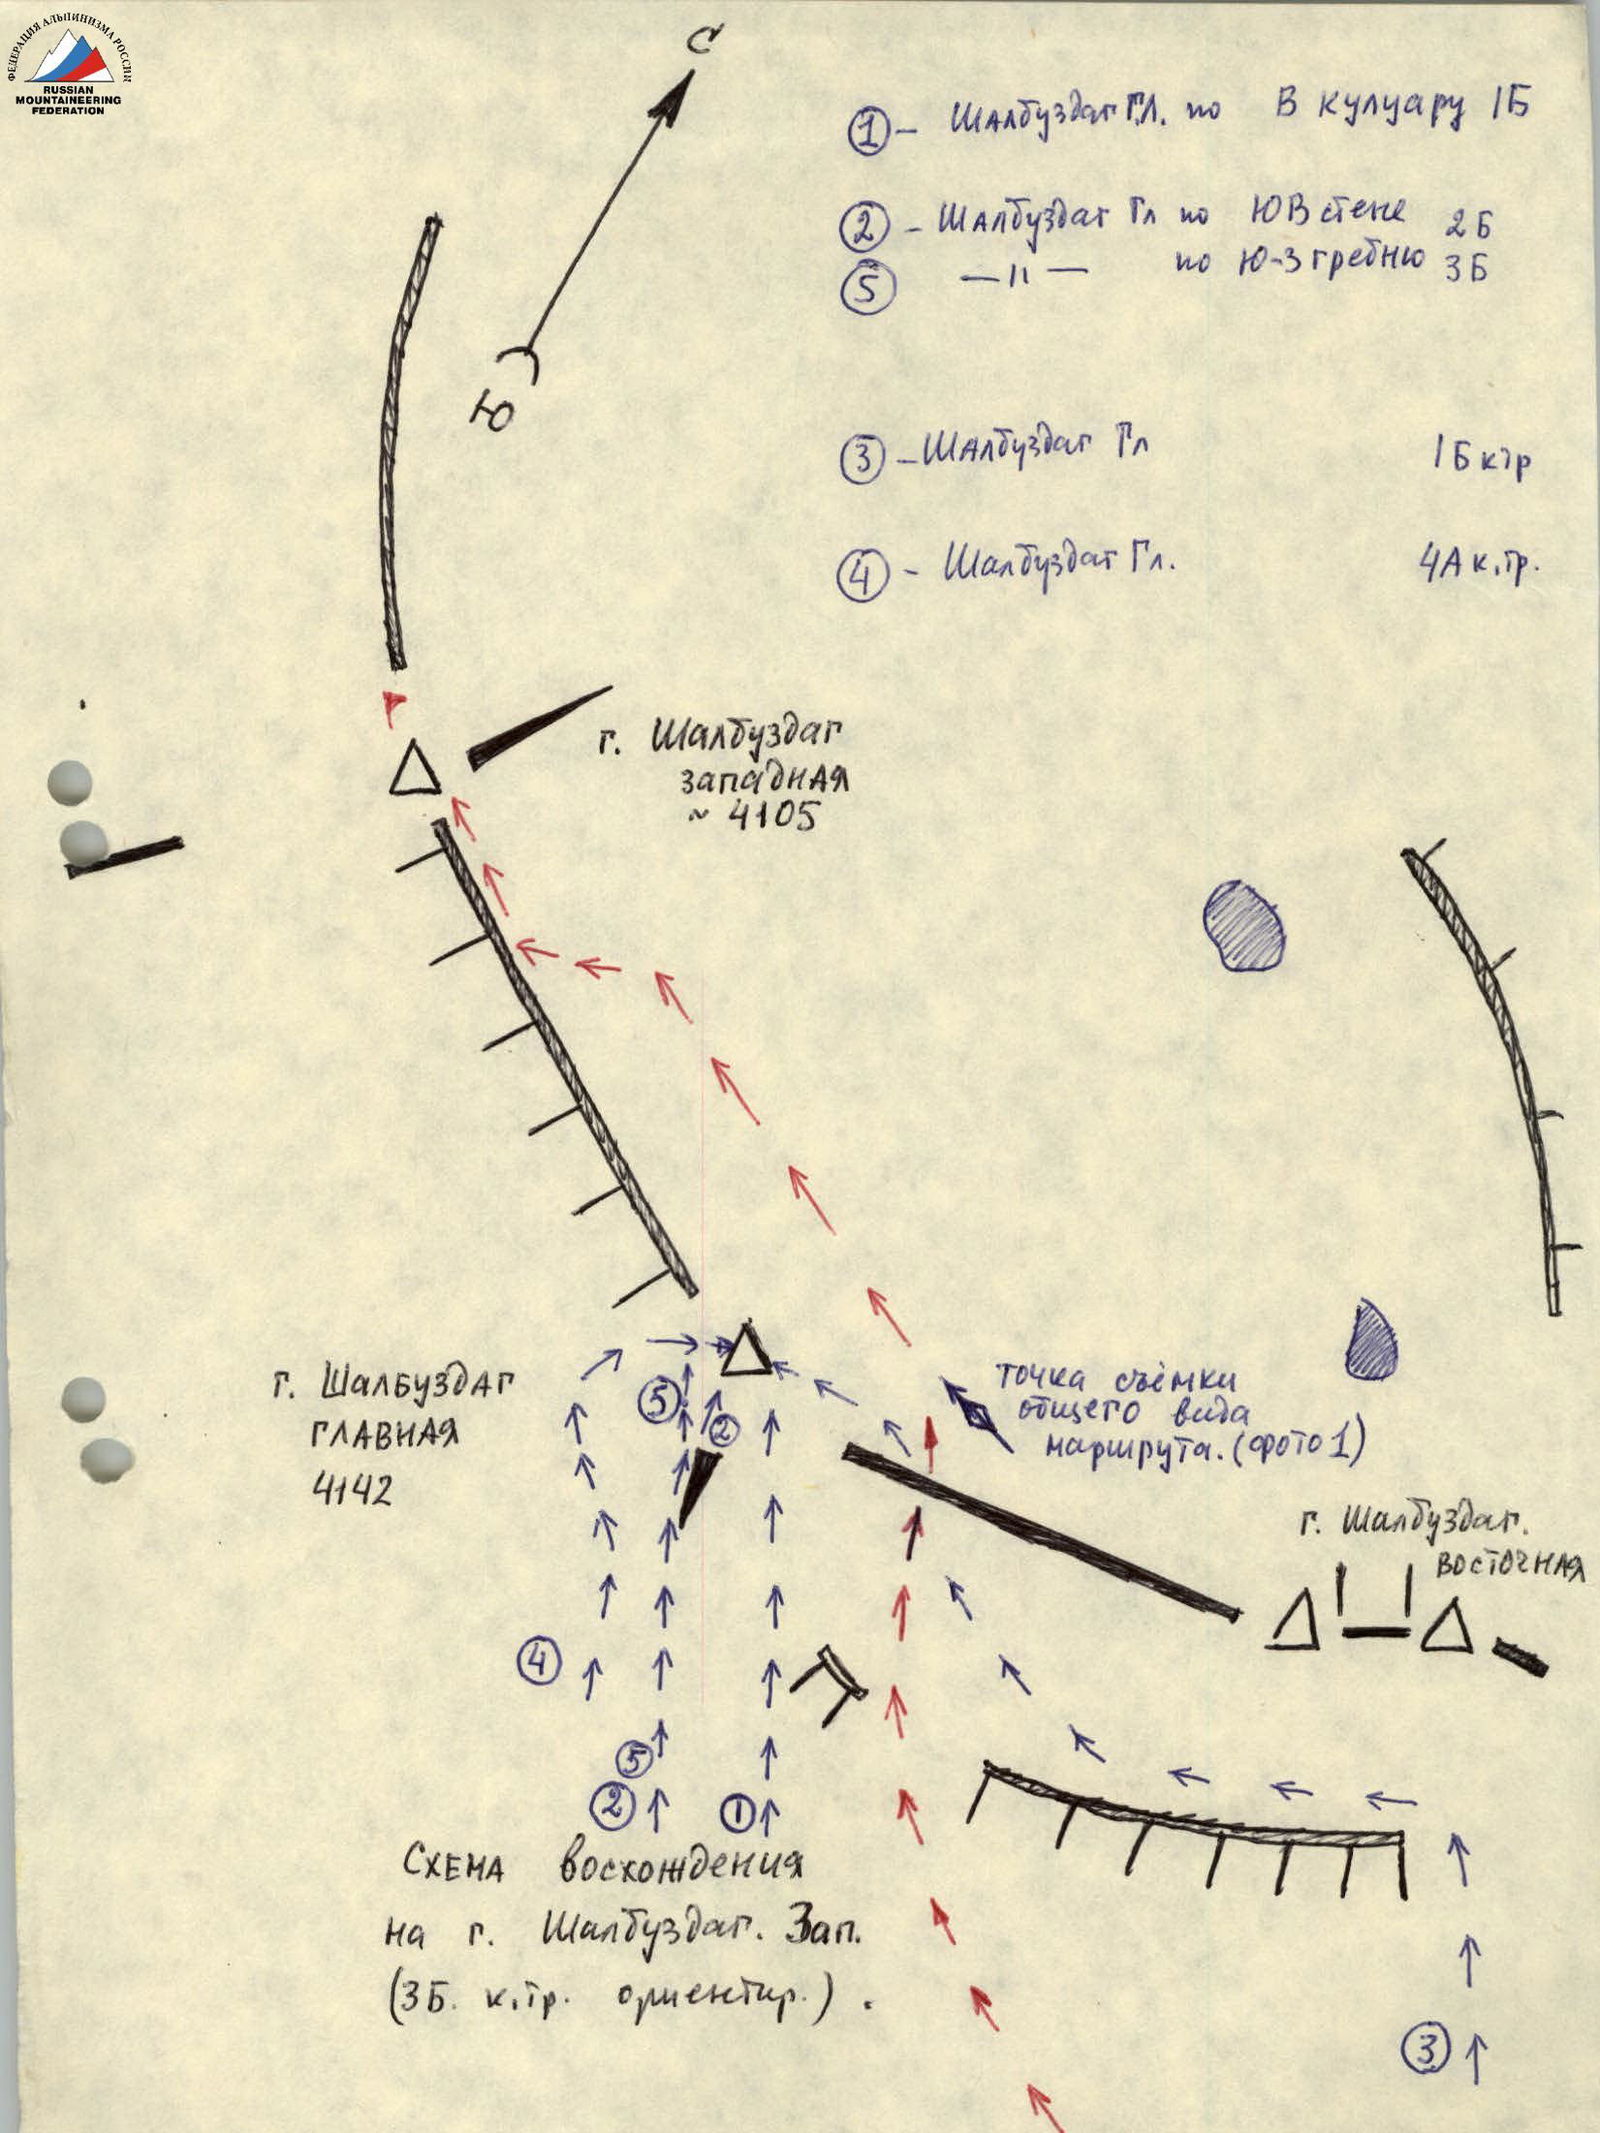 ФЕДЕРАЦИЯ АЛЬПИНИЗМА РОССИИ
RUSSIAN
MOUNTAINEERING
FEDERATION
С
Ю
① – Шалбуздаг Гл. по В кулуару 1Б
② – Шалбуздаг Гл по ЮВ стене 2Б
⑤ —"— по Ю-З гребню 3Б
③ – Шалбуздаг Гл 1Б ктр
④ – Шалбуздаг Гл. 4А к.тр.
г. Шалбуздаг
западная
~ 4105
г. Шалбуздаг
главная
4142
точка съёмки
общего вида
маршрута. (фото 1)
г. Шалбуздаг.
восточная
⑤
②
④
⑤
②
①
③
Схема восхождения
на г. Шалбуздаг. Зап.
(3Б. к.тр. ориентир.).